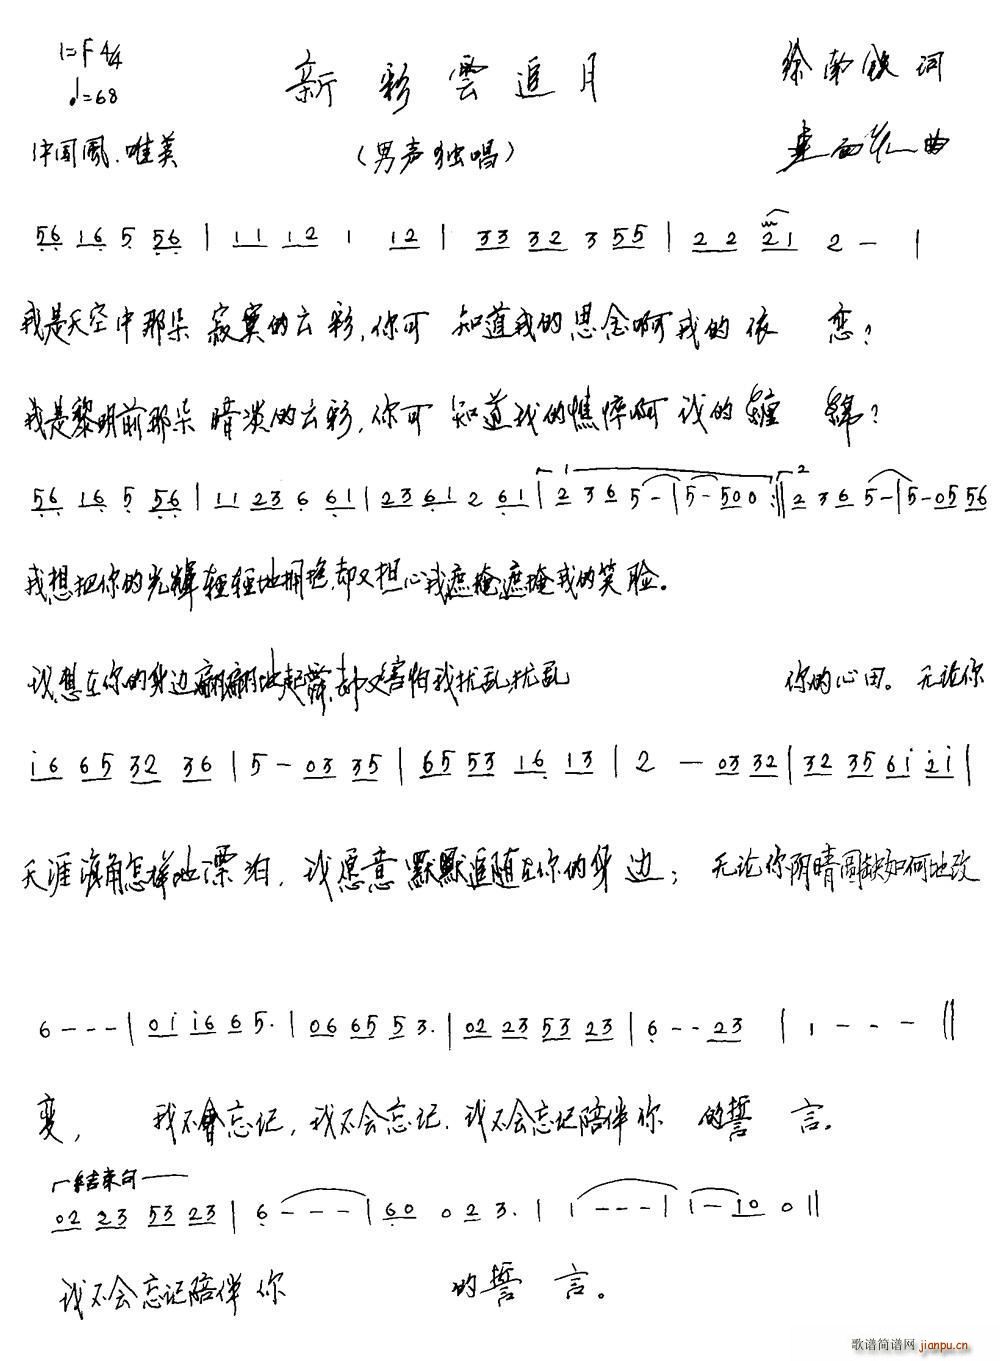 1=F 4/4
新彩雲追月
徐南铁 词
♩=68
中国風.唯美
(男声独唱)
曲
56 16 5 56 | 11 12 1 12 | 33 32 3 55 | 22 21 2 - |
我是天空中那朵 寂寞的云彩,你可 知道我的思念啊我的依 恋?
我是黎明前那朵 暗淡的云彩,你可 知道我的憔悴啊 我的 缠 绵?
56 16 5 56 | 11 23 6 61 | 23 61 2 61 | 1 2 36 5 - | 5 - 500 :|| 2 2 36 5 - | 5 - 05 56
我想把你的光輝轻轻地拥抱,却又担心我遮掩遮掩我的笑脸。
我想在你的身边翩翩地起舞,却又害怕我扰乱扰乱 你的心田。无论你
i6 65 32 36 | 5 - 03 35 | 65 53 16 13 | 2 - 03 32 | 32 35 6i 2i |
天涯海角怎样地漂泊,我愿意默默追随在你的身边; 无论你阴晴圆缺如何地改
6 - - - | 0i i6 6 5. | 06 65 5 3. | 02 23 53 23 | 6 - - 23 | 1 - - - ||
变, 我不會忘记,我不会忘记.我不会忘记陪伴你 的誓 言。
结束句
02 23 53 23 | 6 - - - | 60 0 2 3. | 1 - - - | 1 - 10 0 ||
我不会忘记陪伴你 的誓 言。
歌谱简谱网 jianpu.cn